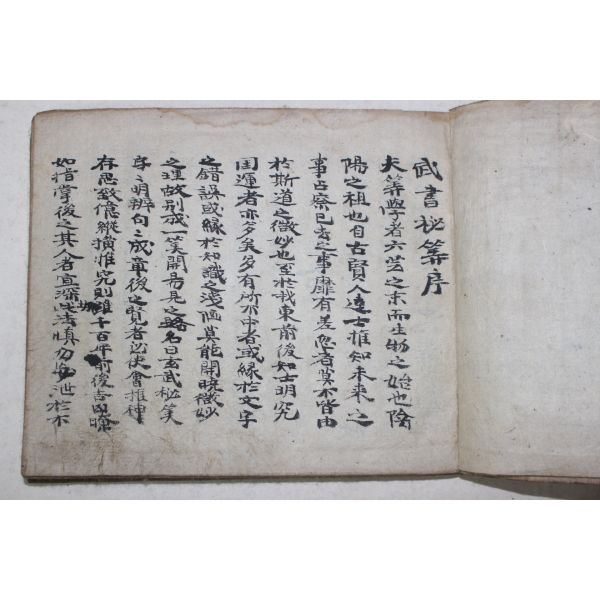 武書秘筭序
夫筭學者六芸之末而生物之始也陰
陽之祖也自古賢人達士推知未來之
事占察已去之事靡有差忒者莫不皆由
於斯道之微妙也至於我東前後知士明究
国運者亦多矣多有所不中者或緣於文字
之錯誤或緣於知識之淺短莫能開曉微妙
之理故別成一笑開易見之路名曰玄武秘笑
辱之明辨句之成章後之賢者必使會推神
存思致億縱橫推究則雖千百年前後吉凶瞭
如指掌後之其人者宜深此法愼勿妄泄於不